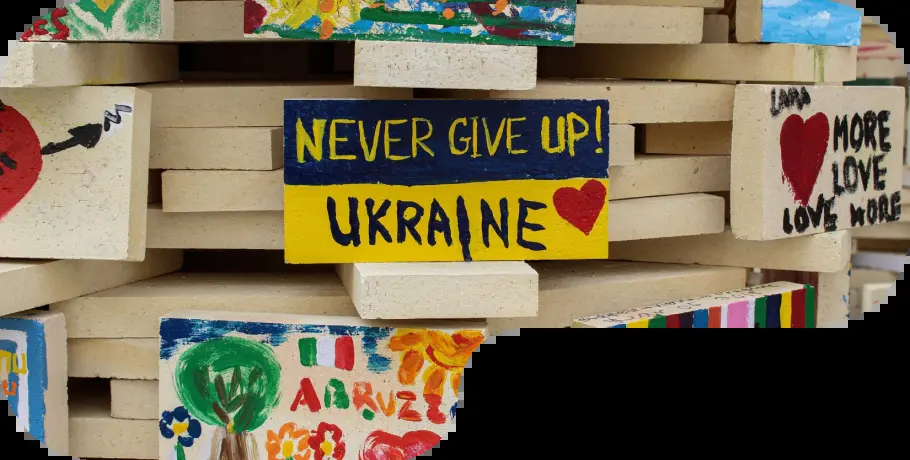 NEVER GIVE UP!
UKRAINE
LARA
MORE
LOVE
LOVE MORE
ABRUZZ